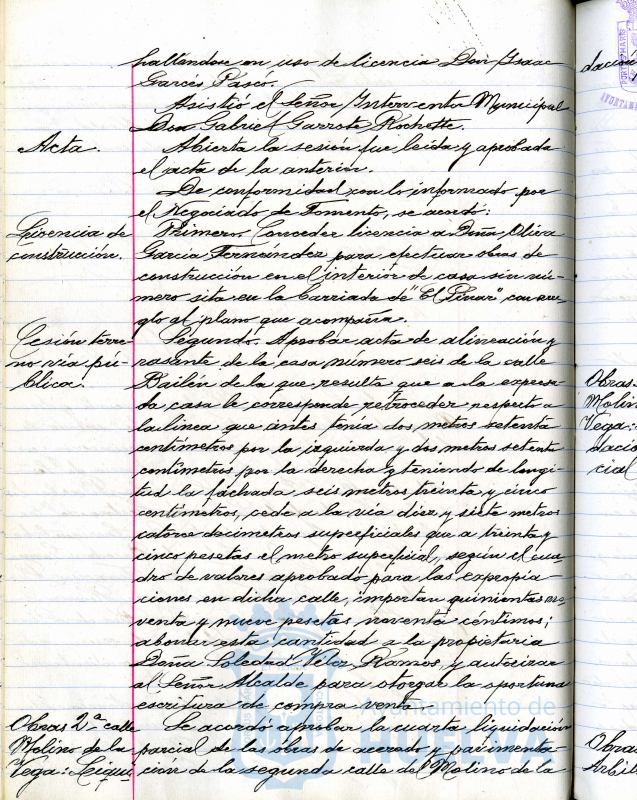 hallándose en uso de licencia Don Isaac
Garcés Pascó.
Asistió el Señor Interventor Municipal
Don Gabriel Garrote Rochette.
Acta.
Abierta la sesión fue leída y aprobada
el acta de la anterior.
De conformidad con lo informado por
el Negociado de Fomento, se acordó:
Licencia de
construcción.
Primero. Conceder licencia a Doña Oliva
García Fernández para efectuar obras de
construcción en el interior de casa sin nú-
mero sita en la barriada de "El Pinar" con arre-
glo al plano que acompaña.
Cesión terre-
no vía pú-
blica.
Segundo. Aprobar acta de alineación y
rasante de la casa número seis de la calle
Bailén de la que resulta que a la expresa-
da casa le corresponde retroceder respecto a
la línea que antes tenía dos metros setenta
centímetros por la izquierda y dos metros setenta
centímetros por la derecha y teniendo de longi-
tud la fachada seis metros treinta y cinco
centímetros, cede a la vía diez y siete metros
catorce decímetros superficiales que a treinta y
cinco pesetas el metro superficial, según el cua-
dro de valores aprobado para las expropia-
ciones en dicha calle, importan quinientas no-
venta y nueve pesetas noventa céntimos;
abonar esta cantidad a la propietaria
Doña Soledad Vélez Ramos, y autorizar
al Señor Alcalde para otorgar la oportuna
escritura de compra venta.
Obras 2ª calle
Molino de la
Vega: Liqui
Se acordó aprobar la cuarta liquidación
parcial de las obras de acerado y pavimenta-
ción de la segunda calle del Molino de la
dación
Obras
Molin
Vega:
dació
cial
Obras
Arbit
Ayuntamiento de
HUELVA